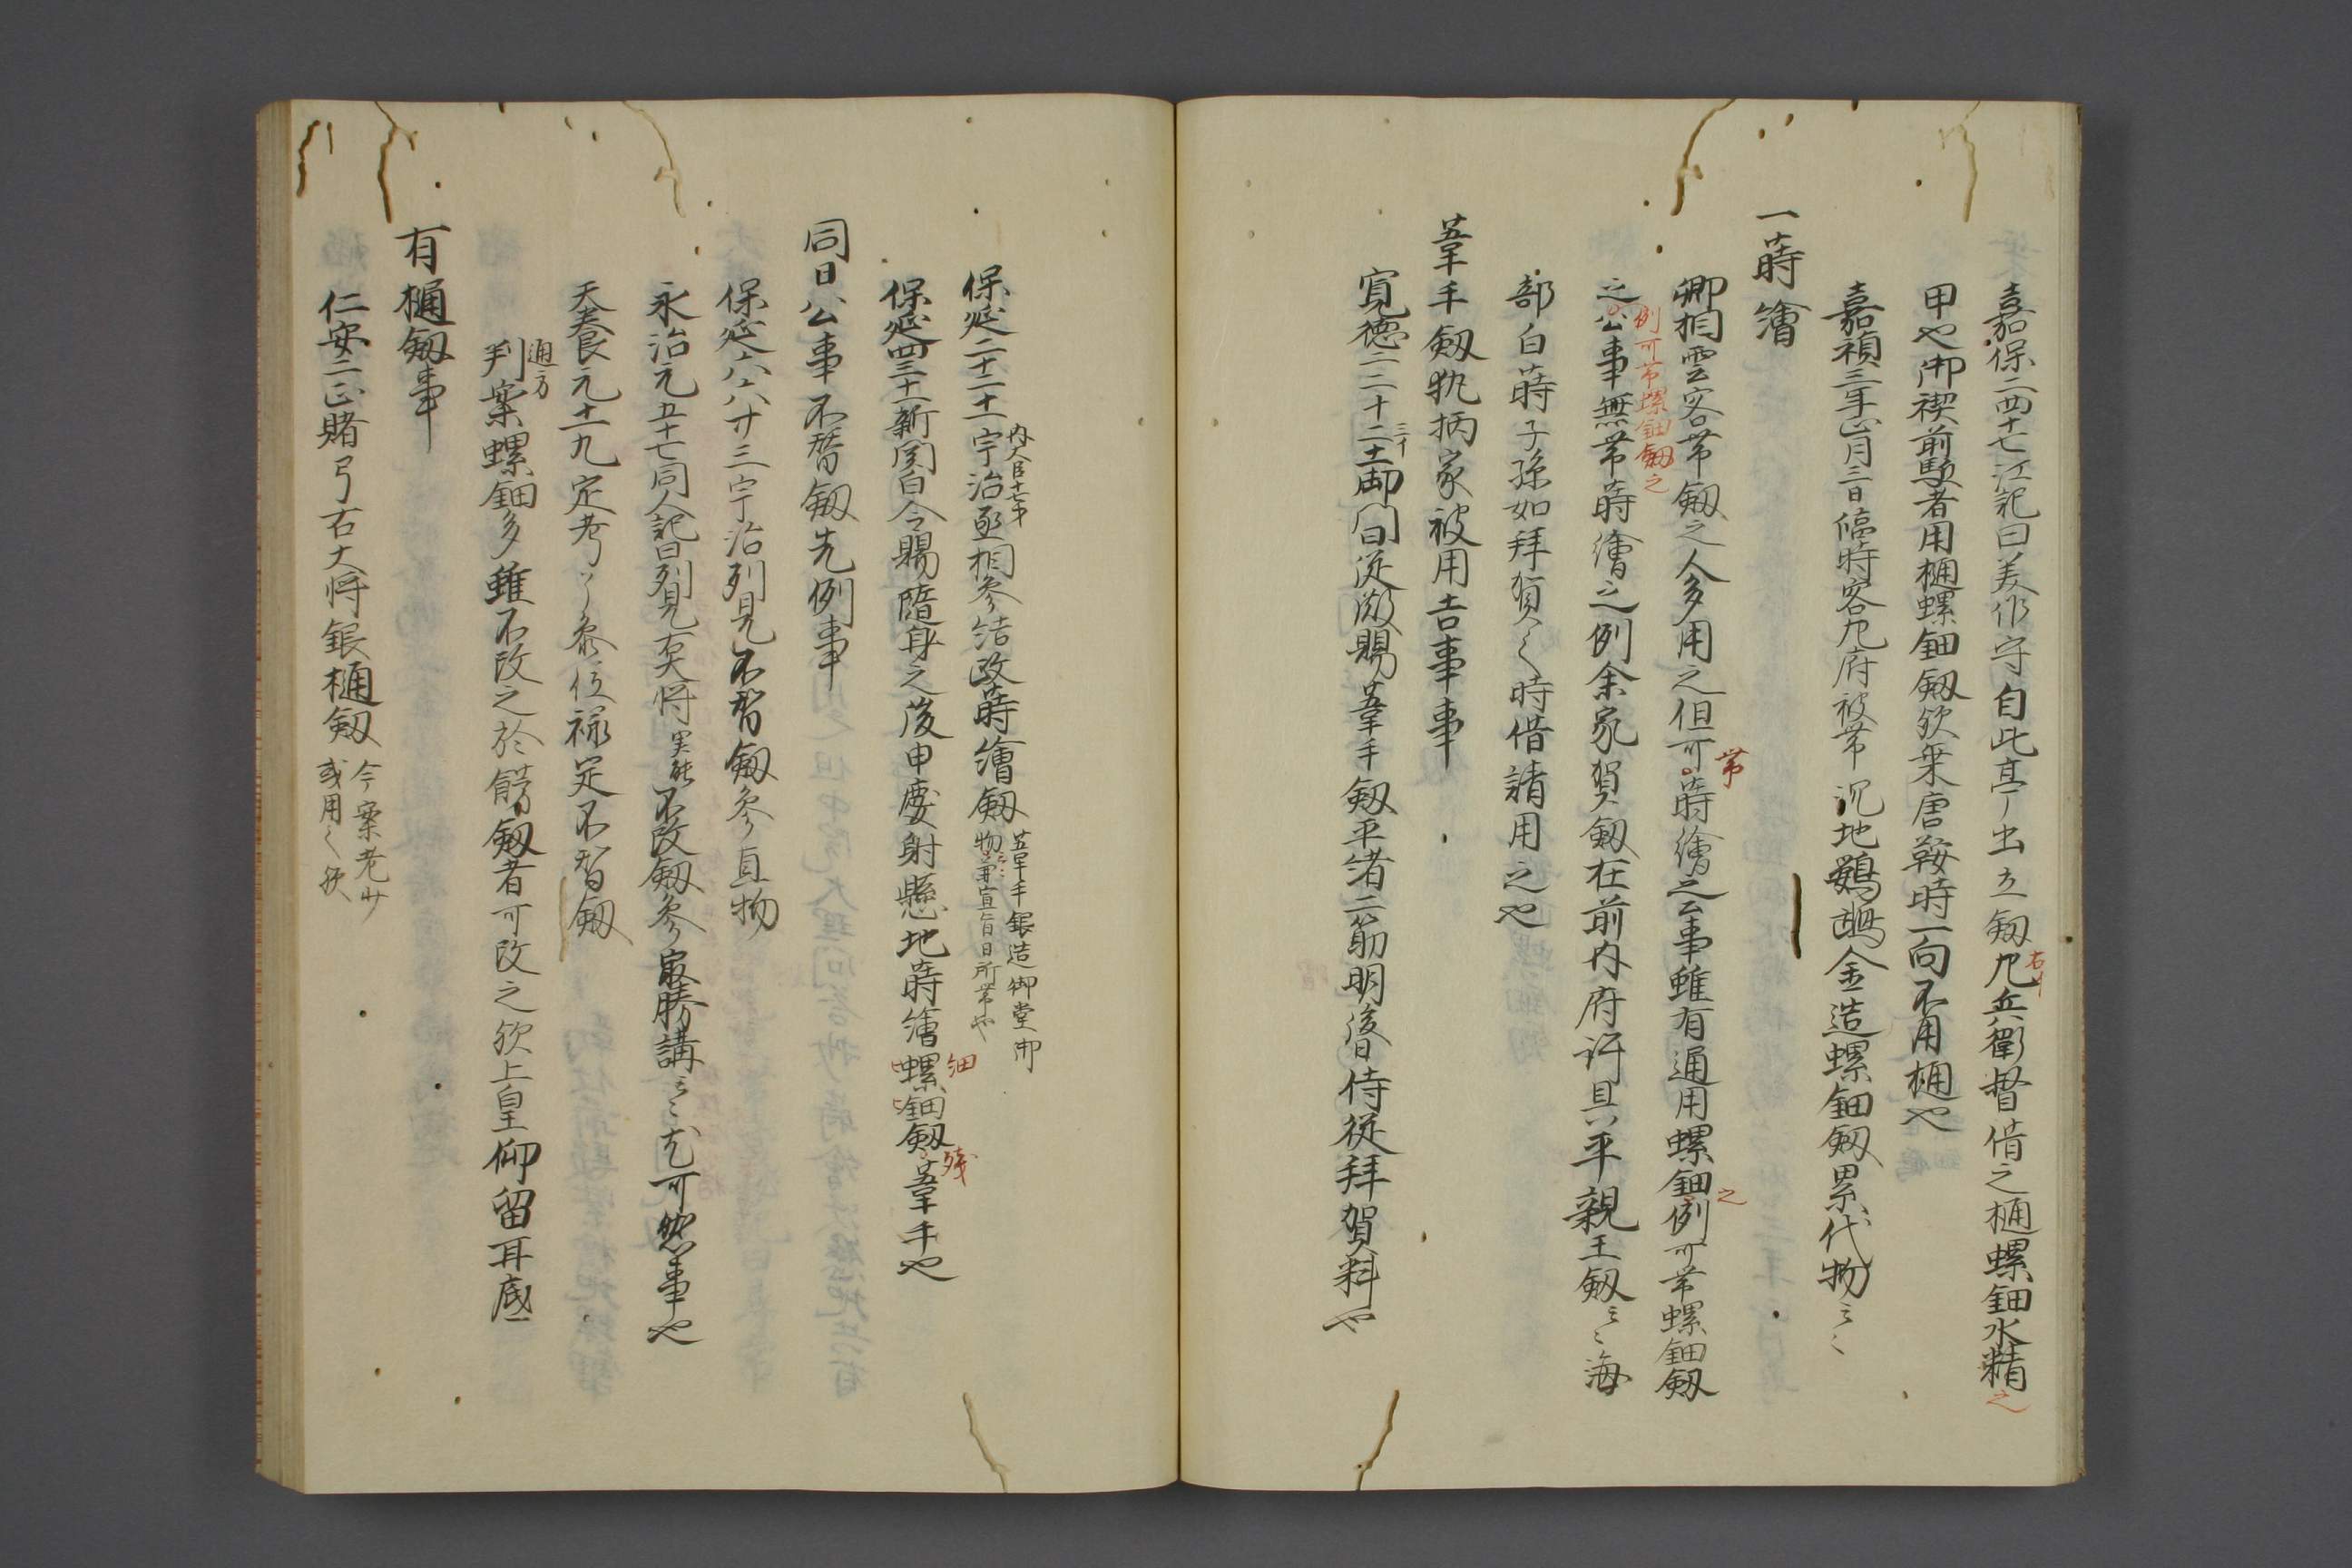 嘉保二四十七江記曰美作守自此亭出立劔九兵衛督借之樋螺鈿水精之
右イ
甲也御禊前駈者用樋螺鈿劔欤乗唐鞍時一向不用樋也
嘉禎三年正月三日臨時客九府被帯沉地鸚鵡金造螺鈿劔累代物云々
一蒔繪
卿相雲客帯劔之人多用之但可蒔繪之公事雖有通用螺鈿例可帯螺鈿劔
帯
之
之公事無帯蒔繪之例余家賀劔在前内府許具平親王劔云々海
例可帯螺鈿劔之
部白蒔子孫如拜賀之時借請用之也
葦手劔執柄家被用吉事事
寛徳二二十二土御門従殿賜葦手劔平緒二筋明後日侍従拜賀料也
三イ
保延二十二十一宇治丞相参結政蒔繪劔
内大臣十七才
葦手銀造御堂御
物兼宣旨日所帯也
保延四三十一新関白令賜随身之後申慶射懸地蒔繪螺鈿劔葦手也
細
残
同日公事不替劔先例事
保延六八廿三宇治列見不替劔参直物
永治元五十七同人記曰列見右大将実能不改劔参最勝講云々尤可然事也
天養元十一九定考了参位禄定不替劔
通方
判案螺鈿多雖不改之於餝劔者可改之欤上皇仰留耳底
有樋劔事
仁安二正賭弓右大将銀樋劔
今案老少
或用之欤